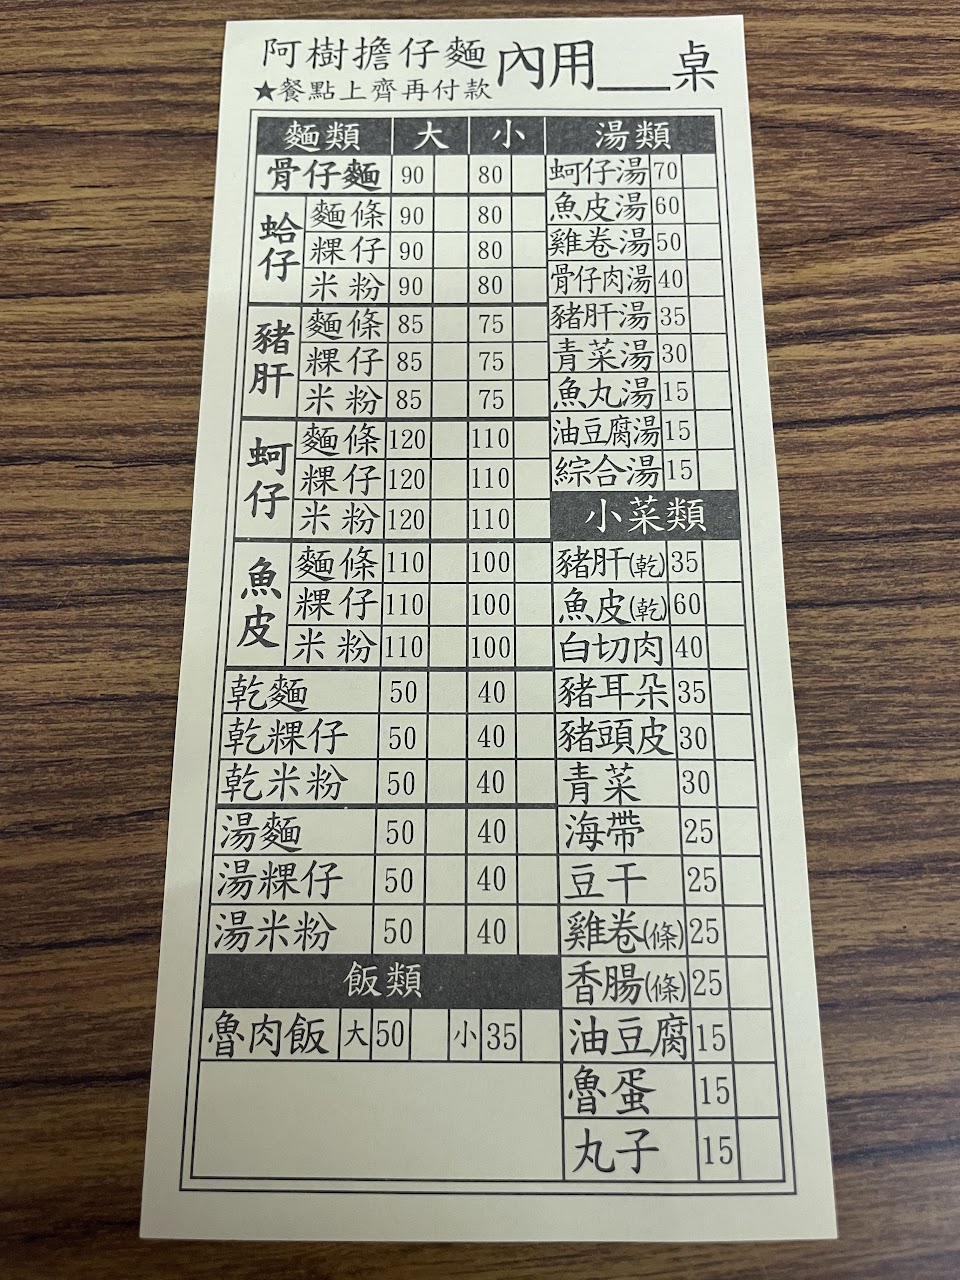 阿樹擔仔麵 內用___桌
★餐點上齊再付款
麵類 大 小
骨仔麵 90 80
蛤仔
麵條 90 80
粿仔 90 80
米粉 90 80
豬肝
麵條 85 75
粿仔 85 75
米粉 85 75
蚵仔
麵條 120 110
粿仔 120 110
米粉 120 110
魚皮
麵條 110 100
粿仔 110 100
米粉 110 100
乾麵 50 40
乾粿仔 50 40
乾米粉 50 40
湯麵 50 40
湯粿仔 50 40
湯米粉 50 40
飯類
魯肉飯 大 50 小 35
湯類
蚵仔湯 70
魚皮湯 60
雞卷湯 50
骨仔肉湯 40
豬肝湯 35
青菜湯 30
魚丸湯 15
油豆腐湯 15
綜合湯 15
小菜類
豬肝(乾) 35
魚皮(乾) 60
白切肉 40
豬耳朵 35
豬頭皮 30
青菜 30
海帶 25
豆干 25
雞卷(條) 25
香腸(條) 25
油豆腐 15
魯蛋 15
丸子 15